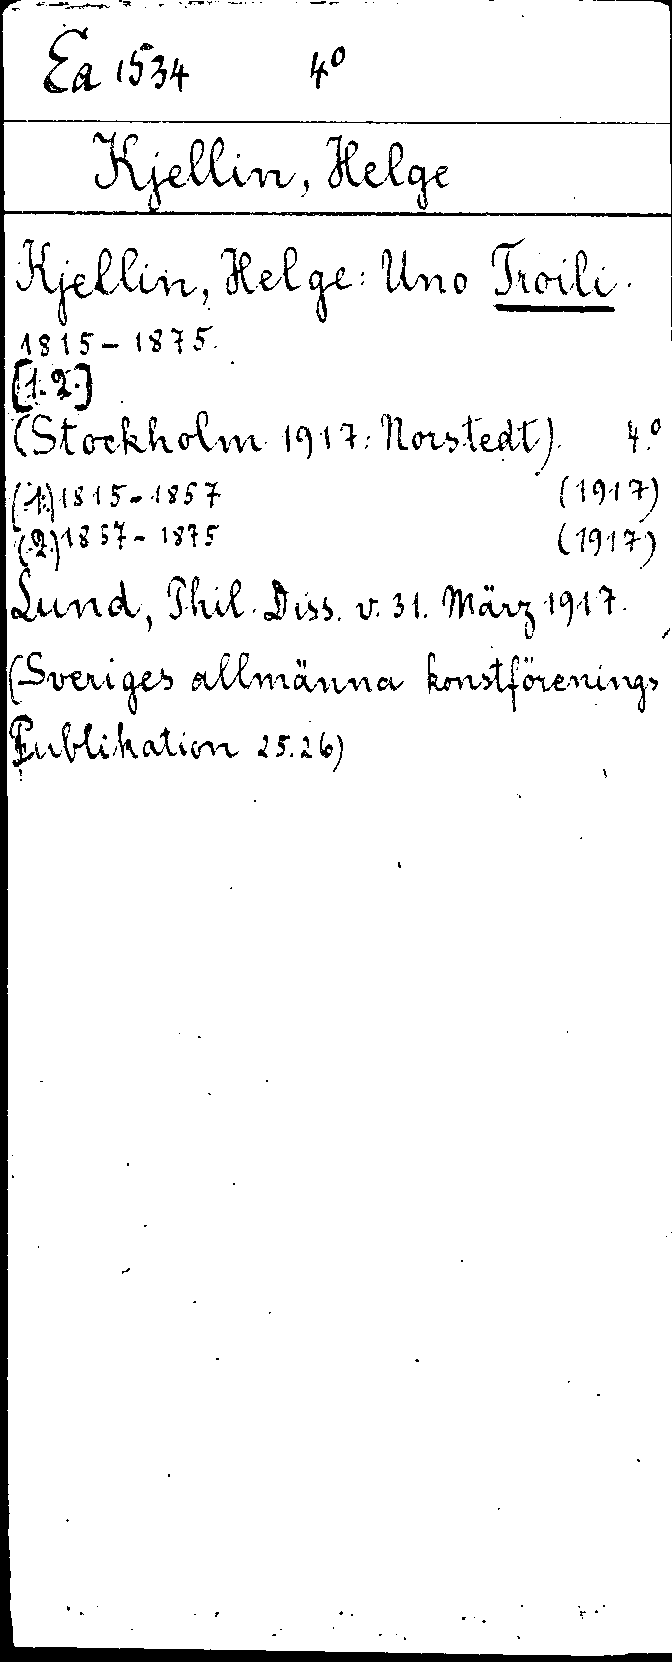 Ea 1534 4°
Kjellin, Helge
Kjellin, Helge: Uno Troili.
1815-1875.
[1.2.]
(Stockholm 1917: Norstedt). 4.°
(1.) 1815-1857 (1917)
(2.) 1857-1875 (1917)
Lund, Phil. Diss. v. 31. März 1917.
(Sveriges allmänna konstförenings
Publikation 25.26)